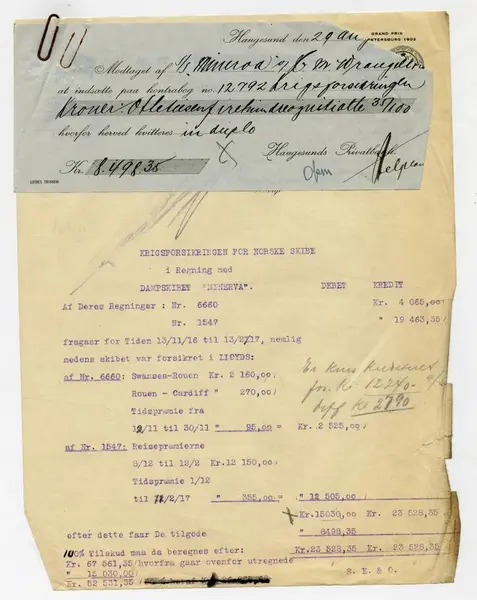 GRAND PRIX
PETERSBURG 1903
Haugesund den 29 Aug
Modtaget af S/S Minerva v/ C. M.
at indsætte paa kontrabog no. 12792 krigsforsikringen
Kroner Ottetusenfirehundreognitiotte 35/100
hvorfor herved kvitteres in duplo
Haugesunds Privatbank
Kr. 8.498.35
KRIGSFORSIKRINGEN FOR NORSKE SKIBE
i Regning med
DAMPSKIBET "MINERVA".
DEBET KREDIT
Af Deres Regninger : Nr. 6660 Kr. 4 065,00
Nr. 1547 " 19 463,35
fragaar for Tiden 13/11/16 til 13/2/17, nemlig
medens skibet var forsikret i LLOYDS:
af Nr. 6660: Swansea-Rouen Kr. 2 160,00
Rouen - Cardiff " 270,00
Tidspræmie fra
12/11 til 30/11 " 95,00 = Kr. 2 525,00
Er kun krediteret
for Kr 12240
diff Kr 2790
af Nr. 1547: Reisepræmierne
8/12 til 12/2 Kr. 12 150,00
Tidspræmie 1/12
til 12/2/17 " 355,00 = " 12 505,00
Kr. 15030,00 Kr. 23 528,35
efter dette faar De tilgode " 8498,35
Kr. 23 528,35 Kr. 23 528,35
100% Tilskud maa da beregnes efter:
Kr. 67 561,35 hvorfra gaar ovenfor utregnede
" 15 030,00
Kr. 52 531,35
S. E. & O.